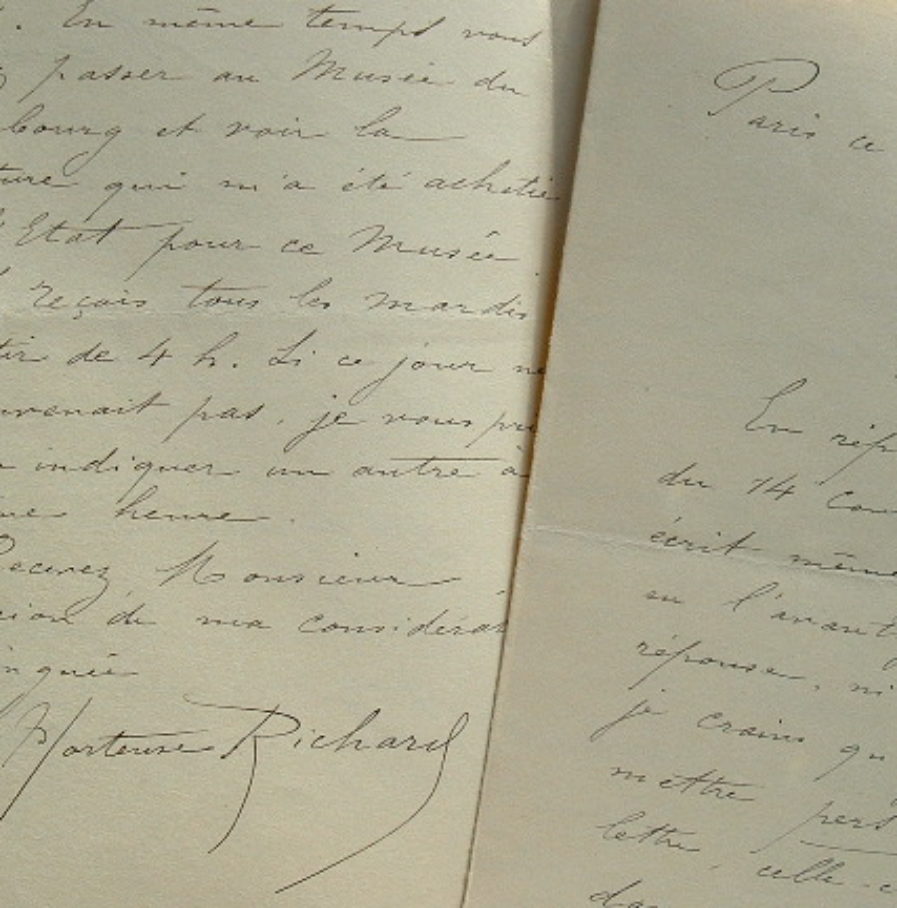 . En même temps vous
passer au Musée du
bourg et voir la
ture qui m'a été achetée
Etat pour ce Musée
reçois tous les mardis
tir de 4 h. Si ce jour ne
venait pas, je vous pri
indiquer un autre à
me heure.
Recevez Monsieur
sion de ma considérat
inguée
Hortense Richard
Paris ce
En rép
du 14 cou
écrit même
su l'avant
réponse, ni
je crains qu
mettre pers
lettre, celle-c
da